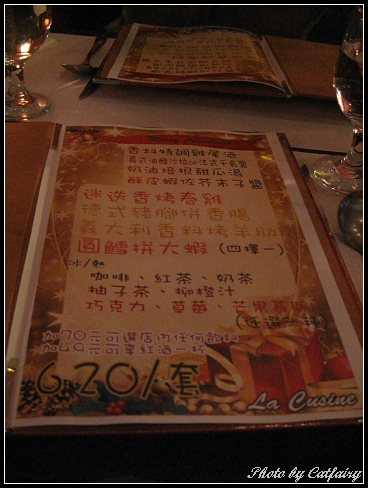 香料特調雞尾酒
義式油醋沙拉or法式干貝醬
奶油培根甜瓜湯
酥皮蝦佐芥末子醬
迷迭香烤春雞
德式豬腳拼香腸
義大利香料烤羊肋
圓鱈拼大蝦（四擇一）
冰/熱
咖啡、紅茶、奶茶
柚子茶、柳橙汁
巧克力、草莓、芒果慕斯
(任選一種)
加70元可選店內任何飲料
加49元可享紅酒一杯
620/套
La Cusine
Photo by Catfairy